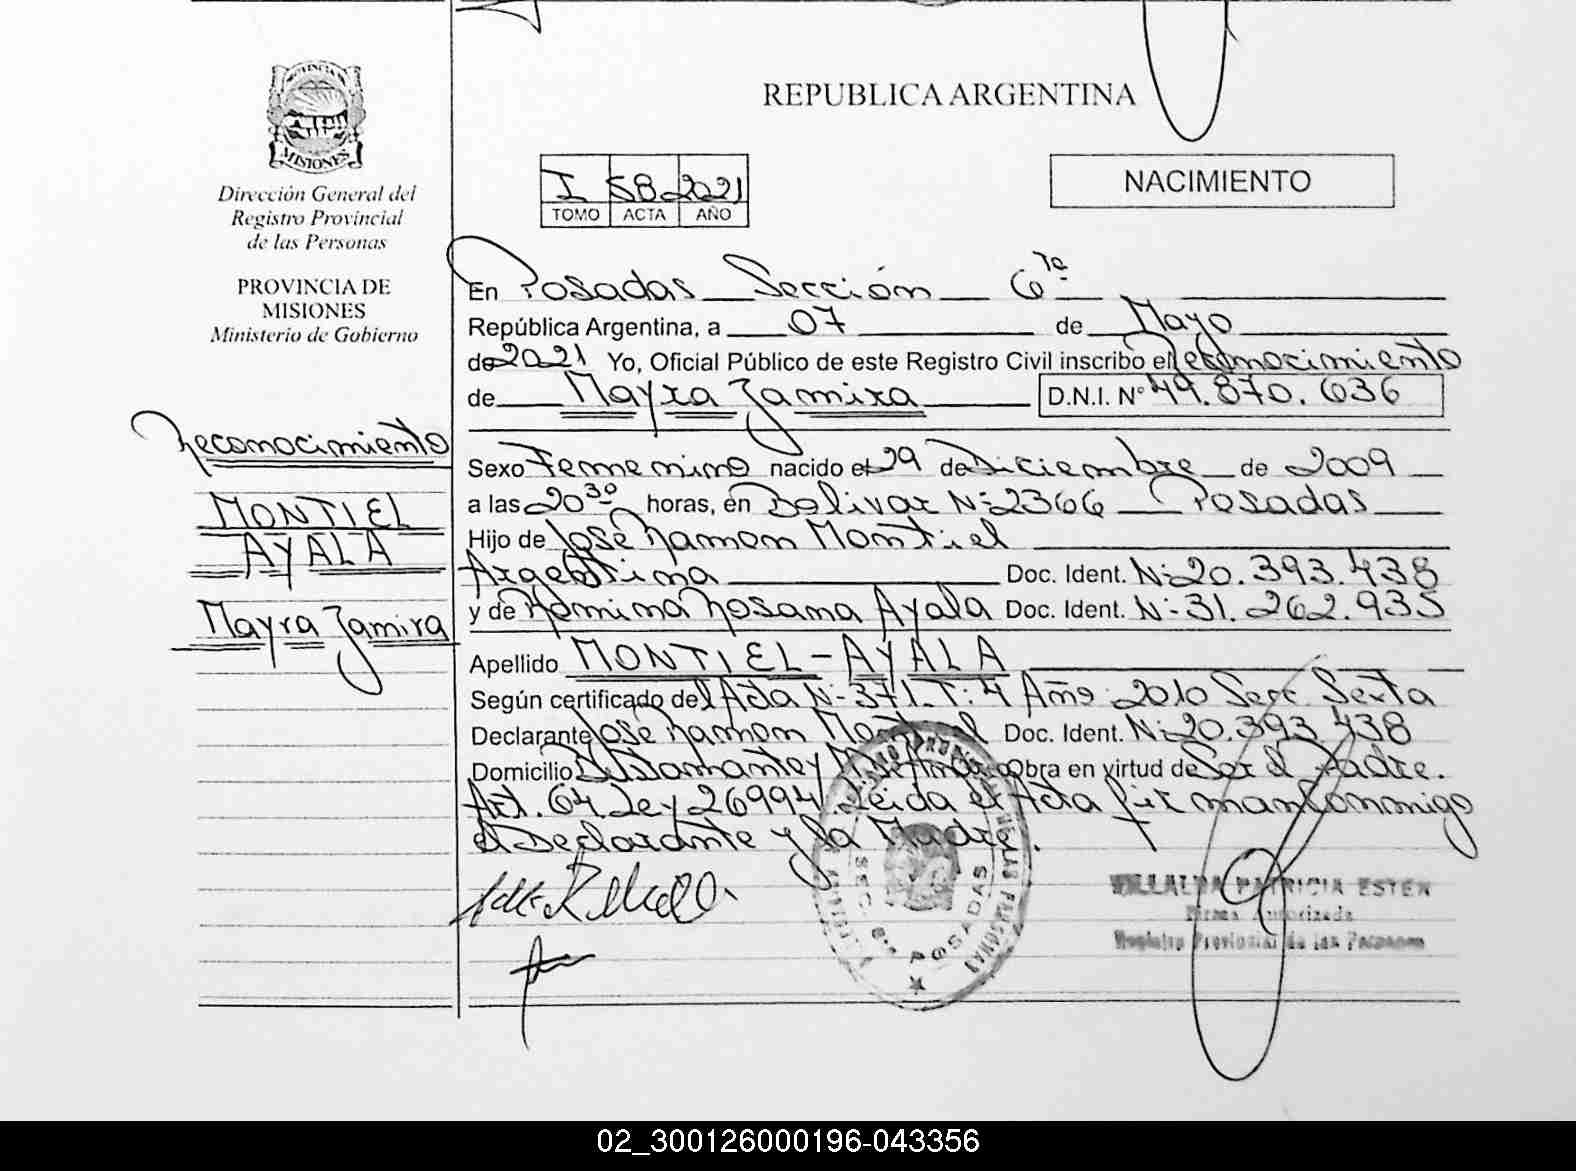 REPUBLICA ARGENTINA
PROVINCIA DE
MISIONES
Dirección General del
Registro Provincial
de las Personas
PROVINCIA DE
MISIONES
Ministerio de Gobierno
I 58 2021
TOMO ACTA AÑO
NACIMIENTO
Reconocimiento
MONTIEL
AYALA
Mayra Jamira
En Posadas Sección 6ta
República Argentina, a 07 de Mayo
de 2021 Yo, Oficial Público de este Registro Civil inscribo el Reconocimiento
de Mayra Jamira D.N.I. Nº 49.870.636
Sexo Femenino nacido el 29 de Diciembre de 2009
a las 20 30 horas, en Bolivar Nº 2366 Posadas
Hijo de José Ramon Montiel
Argentina Doc. Ident. Nº 20.393.438
y de Rosana Ayala Doc. Ident. Nº 31.262.935
Apellido MONTIEL - AYALA
Según certificado del Acta Nº 371. T: 4 Año: 2010 Secc. Sexta
Declarante José Ramon Montiel Doc. Ident. Nº 20.393.438
Domicilio Obra en virtud de Ser el Padre.
Art. 64 Ley 26994, Leida el Acta firman conmigo
el Declarante y la Madre.
SEC. 6a. POSADAS
VILLALBA PATRICIA ESTER
Firma Autorizada
Registro Provincial de las Personas
02_300126000196-043356